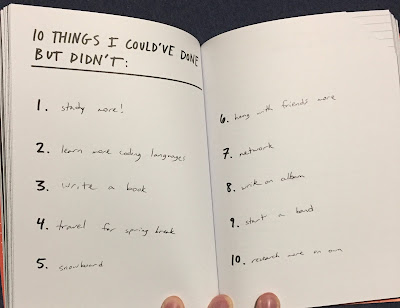 10 THINGS I COULD'VE DONE
BUT DIDN'T:
1. study more!
2. learn more coding languages
3. write a book
4. travel for spring break
5. snowboard
6. hang with friends more
7. network
8. write an album
9. start a band
10. research more on own